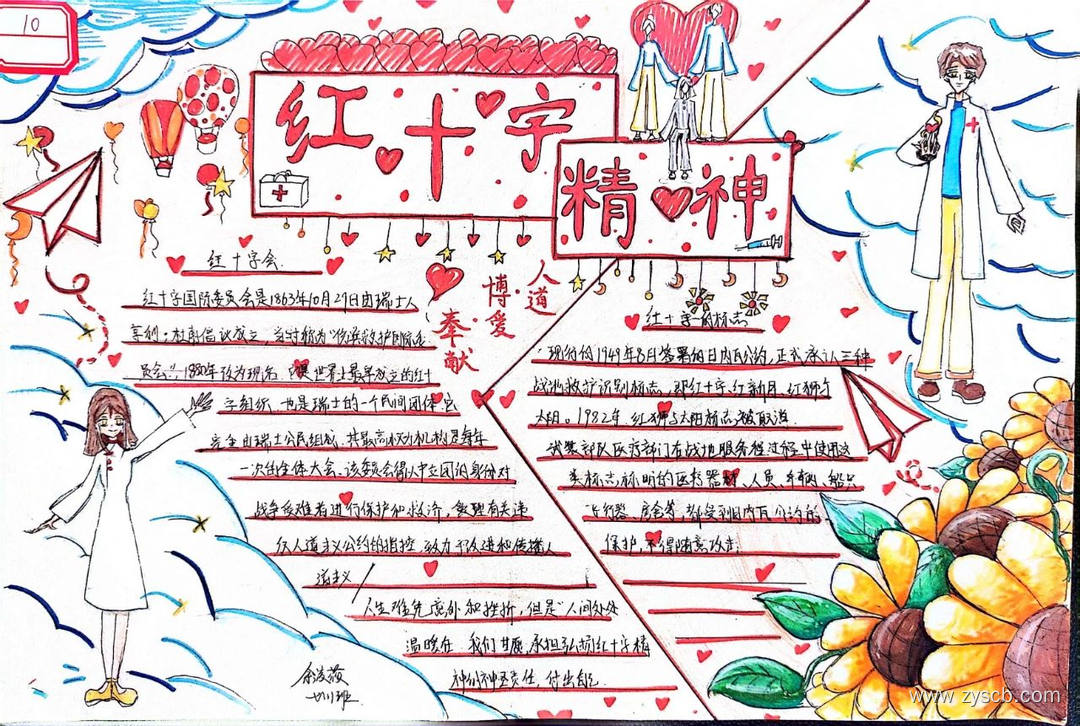 10
红十字
精神
人道
博爱
奉献
红十字会
红十字国际委员会是1863年10月29日由瑞士人
亨利·杜南倡议成立，当时称为"伤兵救护国际
委员会"，1880年改为现名。是世界上最早成立的红十
字组织，也是瑞士的一个民间团体，它
完全由瑞士公民组成，其最高机构是每年
一次的全体大会。该委员会得以中立团的身份对
战争受难者进行保护和救济，受理有关违
反人道主义公约的指控，致力于改进和传播人
道主义
人生难免意外和挫折，但是人间处处
温暖在 我们甘愿，承担弘扬红十字精
神的神圣责任 付出自己
红十字的标志
现行的1949年8月签署的日内瓦公约，正式承认三种
战地救护识别标志，即红十字、红新月、红狮与
太阳。1982年，红狮与太阳标志被取消
武装部队医疗部门在战地服务程过程中使用这
类标志标明的医疗器、人员、车辆、船只
飞行器、房舍等，都受到日内瓦公约的
保护，不得随意攻击
www.zyscb.com